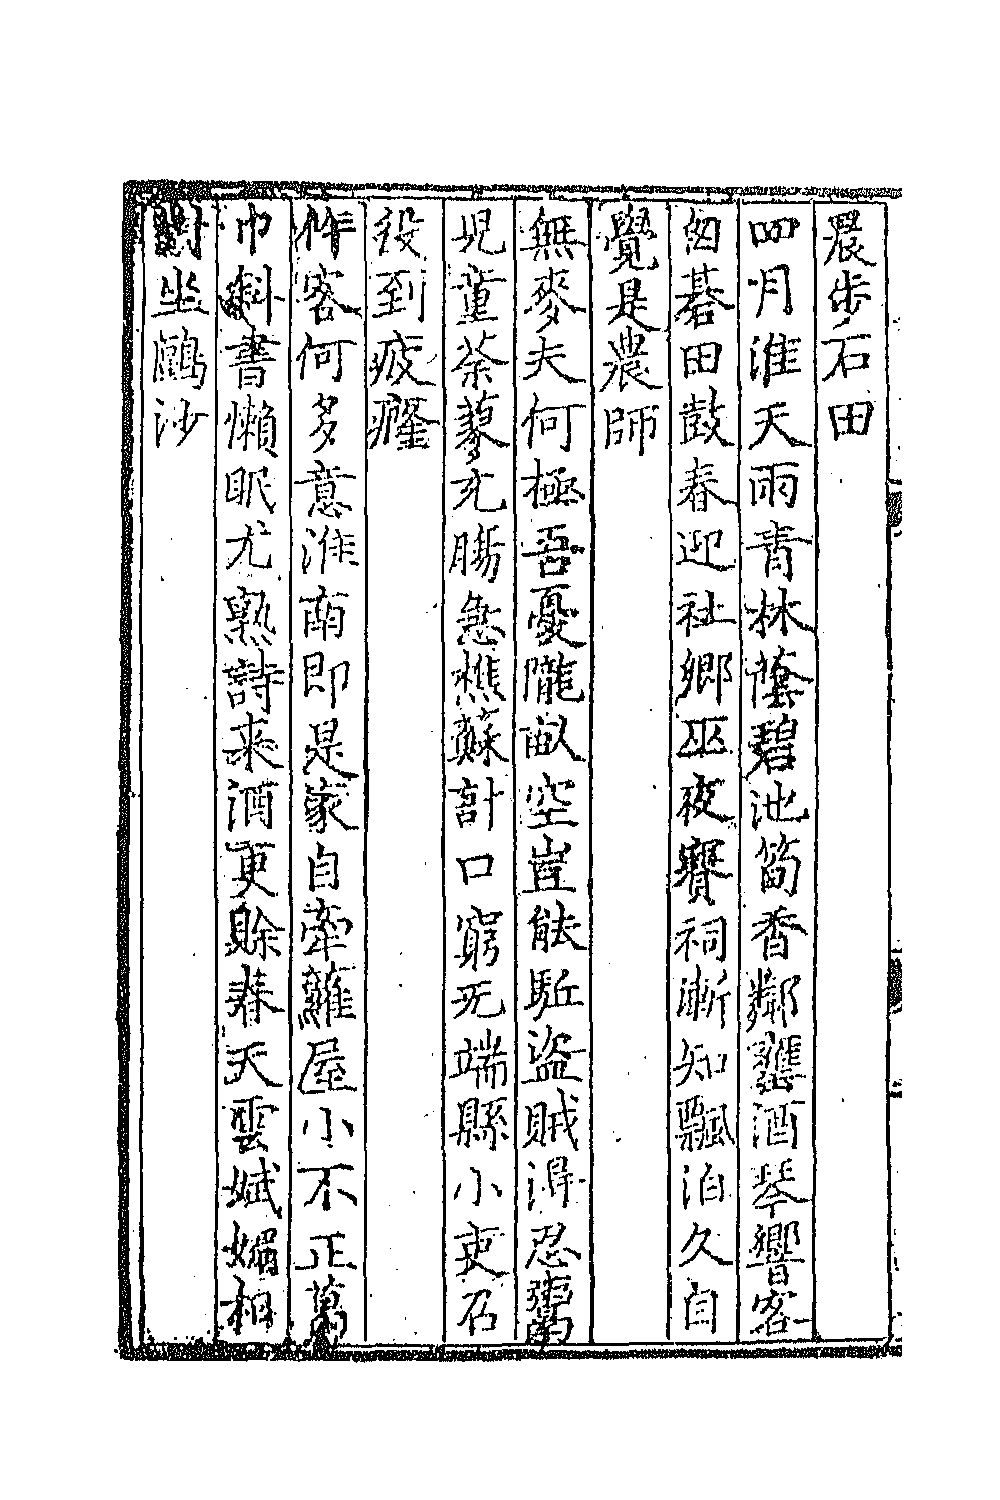 晨步石田
四月淮天雨青林蔭碧池筩香鄰甕酒琴響客
囪碁田鼓春迎社鄉巫夜賽祠漸知飄泊久自
覺是農師
無麥夫何極吾憂隴畝空豈能駈盜賊淂忍鬻
児童荼蓼充腸急樵蘇計口窮无端縣小吏名
役到疲癃
作客何多意淮南即是家自牽蘿屋小不正葛
巾斜書懶眠尤熟詩来酒更賖暮天雲斌媚相
對坐鷗沙